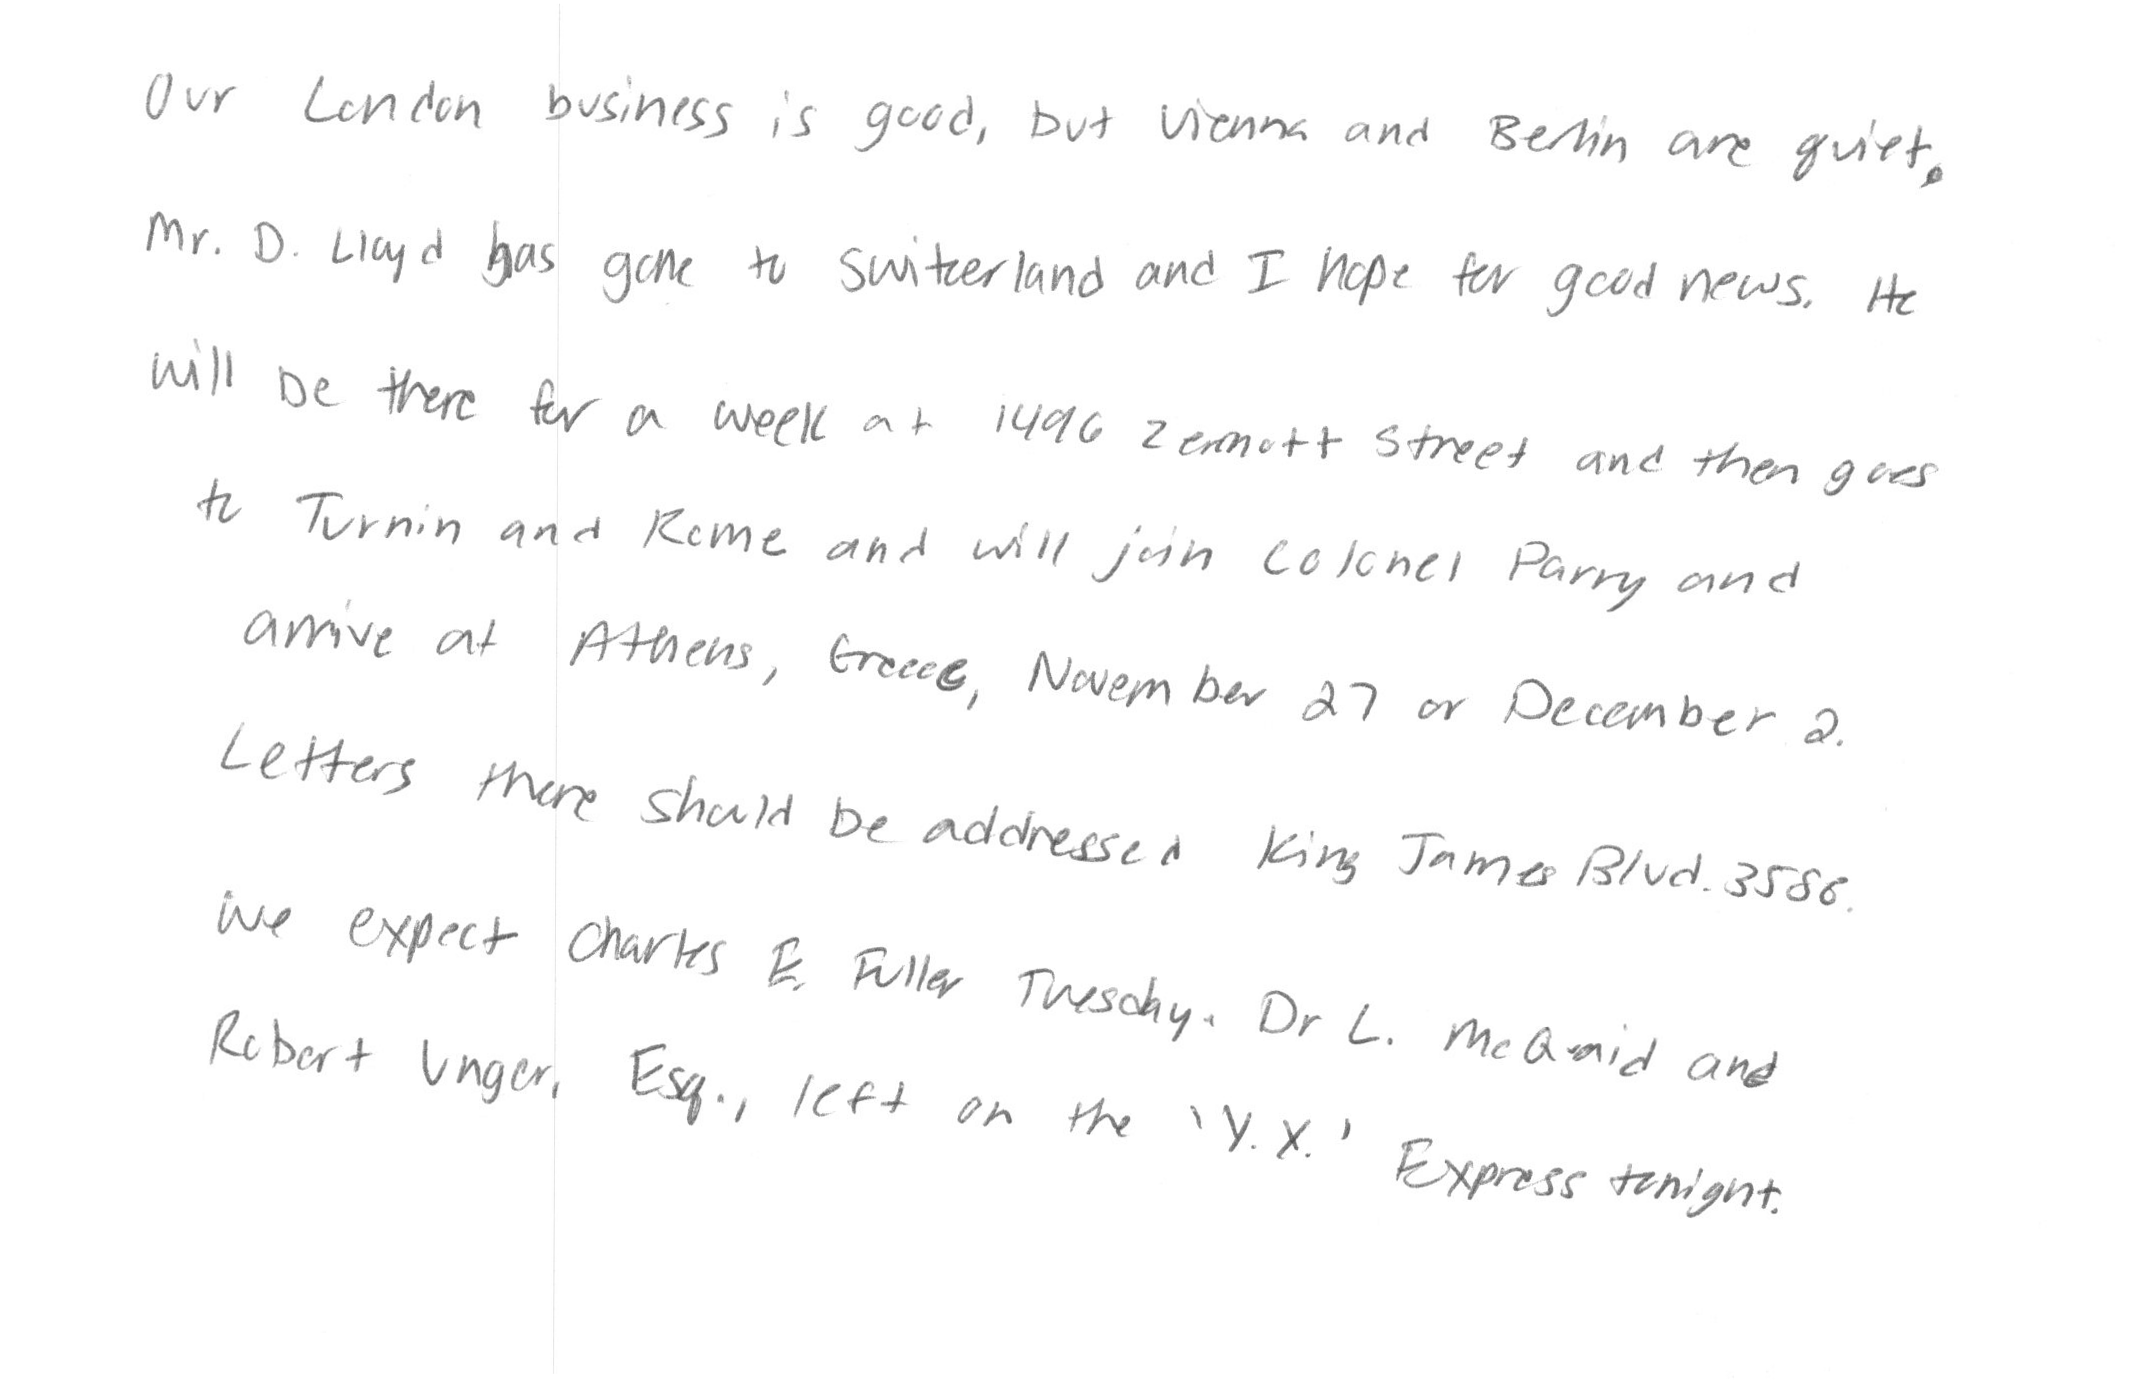 Our London business is good, but Vienna and Berlin are quiet.
Mr. D. Lloyd has gone to Switzerland and I hope for good news. He
will be there for a week at 1496 Zermott Street and then goes
to Turnin and Rome and will join Colonel Parry and
arrive at Athens, Greece, November 27 or December 2.
Letters there should be addressed King James Blvd. 3586.
We expect Charles E. Fuller Tuesday. Dr L. McQuaid and
Robert Unger, Esq., left on the 'Y.X.' Express tonight.